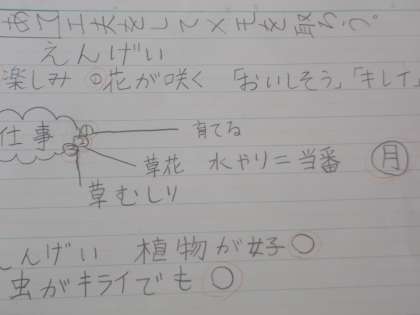 て工夫をしてメモを取ろう。
えんげい
楽しみ ◎花が咲く 「おいしそう」「キレイ」
仕事 ① 育てる
② 草花 水やり=当番 月
③ 草むしり
んげい 植物が好 ○
虫がキライでも ○